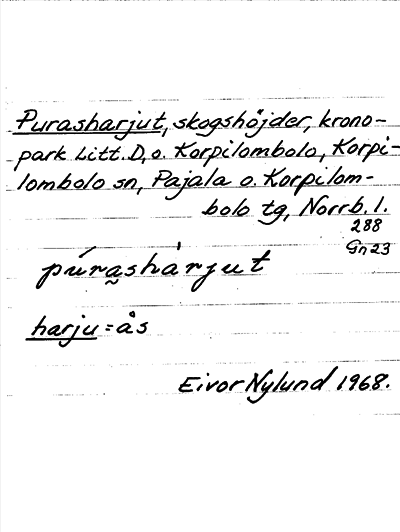 Purasharjut, skogshöjder, krono-
park Litt. D, o. Korpilombolo, Korpi-
lombolo sn, Pajala o. Korpilom-
bolo tg, Norrb. l.
288
Gn 23
púra̰shàrjut
harju = ås
Eivor Nylund 1968.